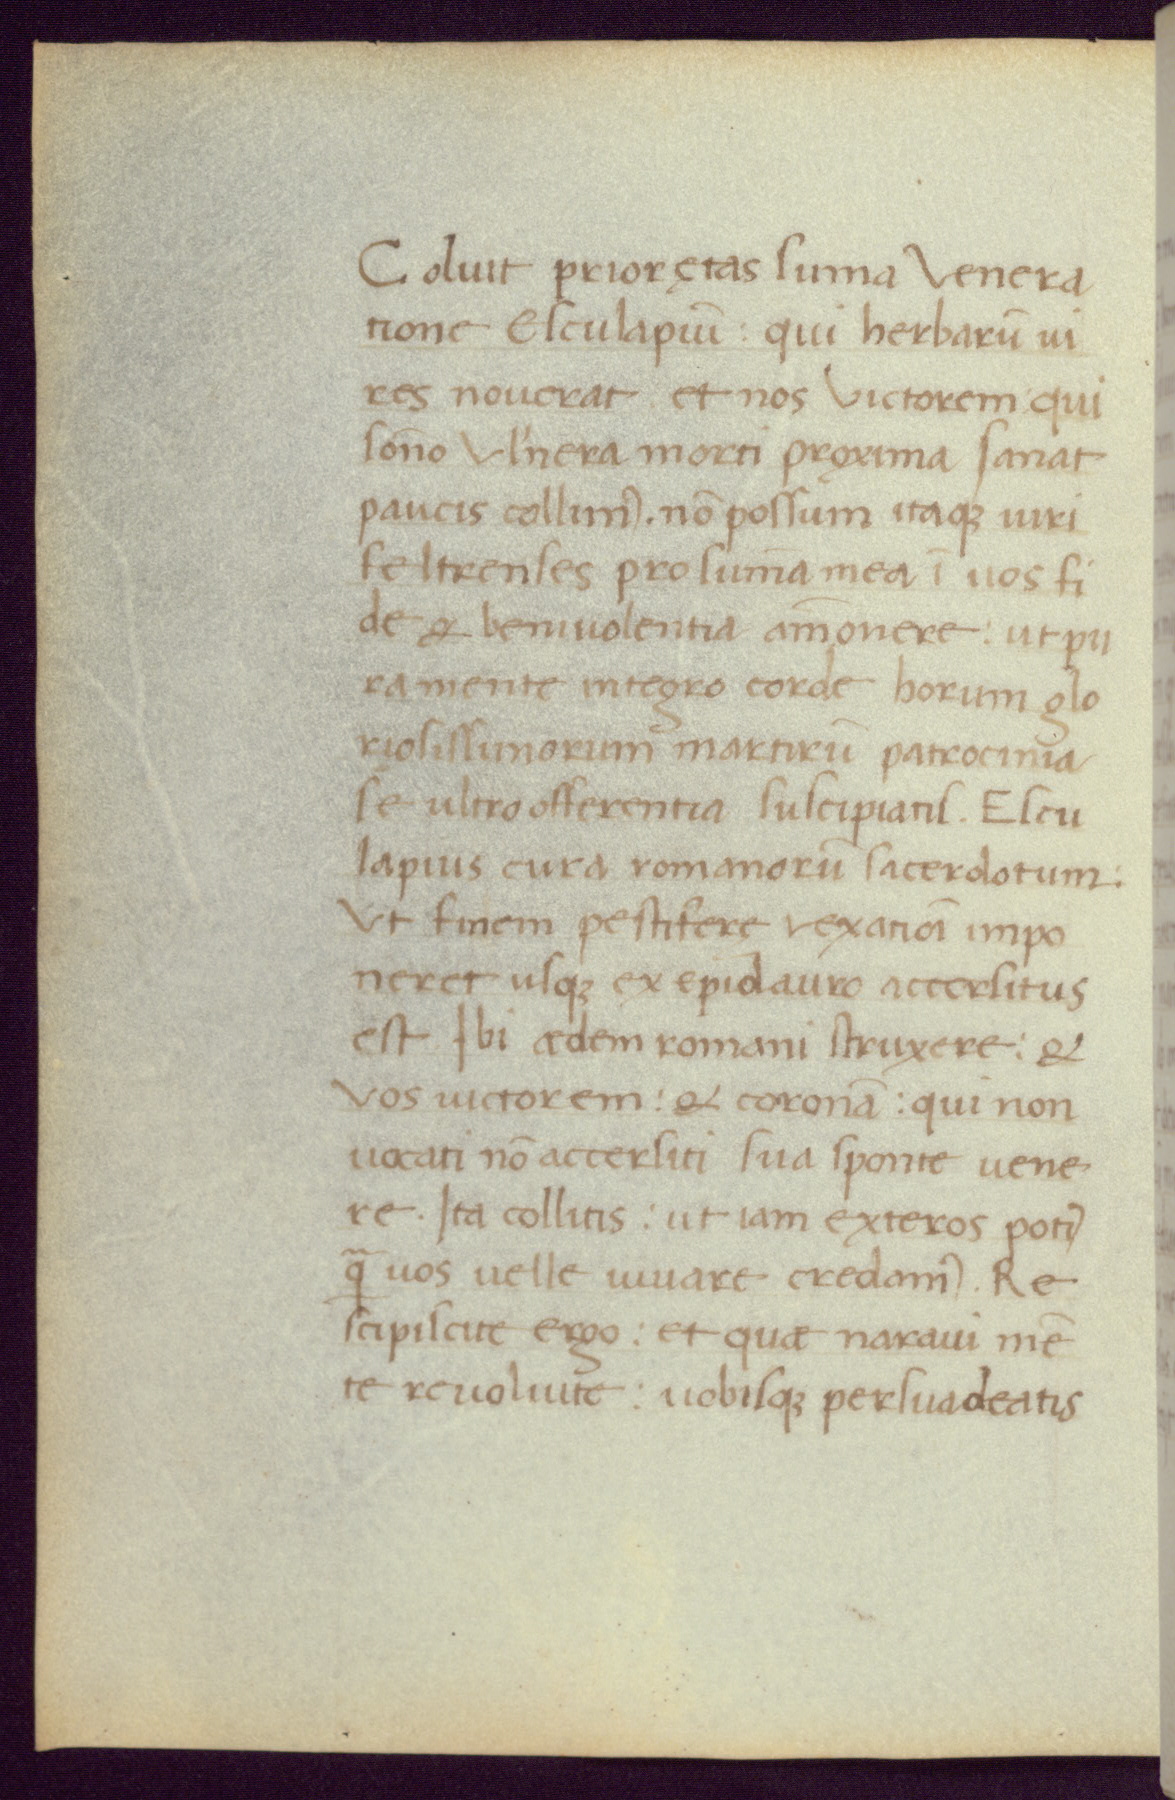 Coluit prior ętas suma Venera
tione Esculapiū : qui herbarū ui
res nouerat et nos Victorem qui
som̄o Vlnera morti proxima sanat
paucis collim⁹. nō possum itaqꝫ uiri
feltrenses pro sum̄a mea ī uos fi
de & beniuolentia am̄onere : ut pu
ra mente integro corde horum glo
riosissimorum martirū patrocinia
se ultro offerentia suscipiatis. Escu
lapius cura romanorū sacerdotum :
Vt finem pestifere vexatiōi impo
neret usqꝫ ex epidauro accersitus
est Ibi ædem romani struxere : &
Vos uictorem : & coronā : qui non
uocati nō accersiti sua sponte uene
re. Ita collitis : ut iam exteros poti⁹
q̄ uos uelle iuuare credam⁹. Re
scipiscite ergo : et quæ naraui mē
te reuoluite : uobisqꝫ persuadeatis